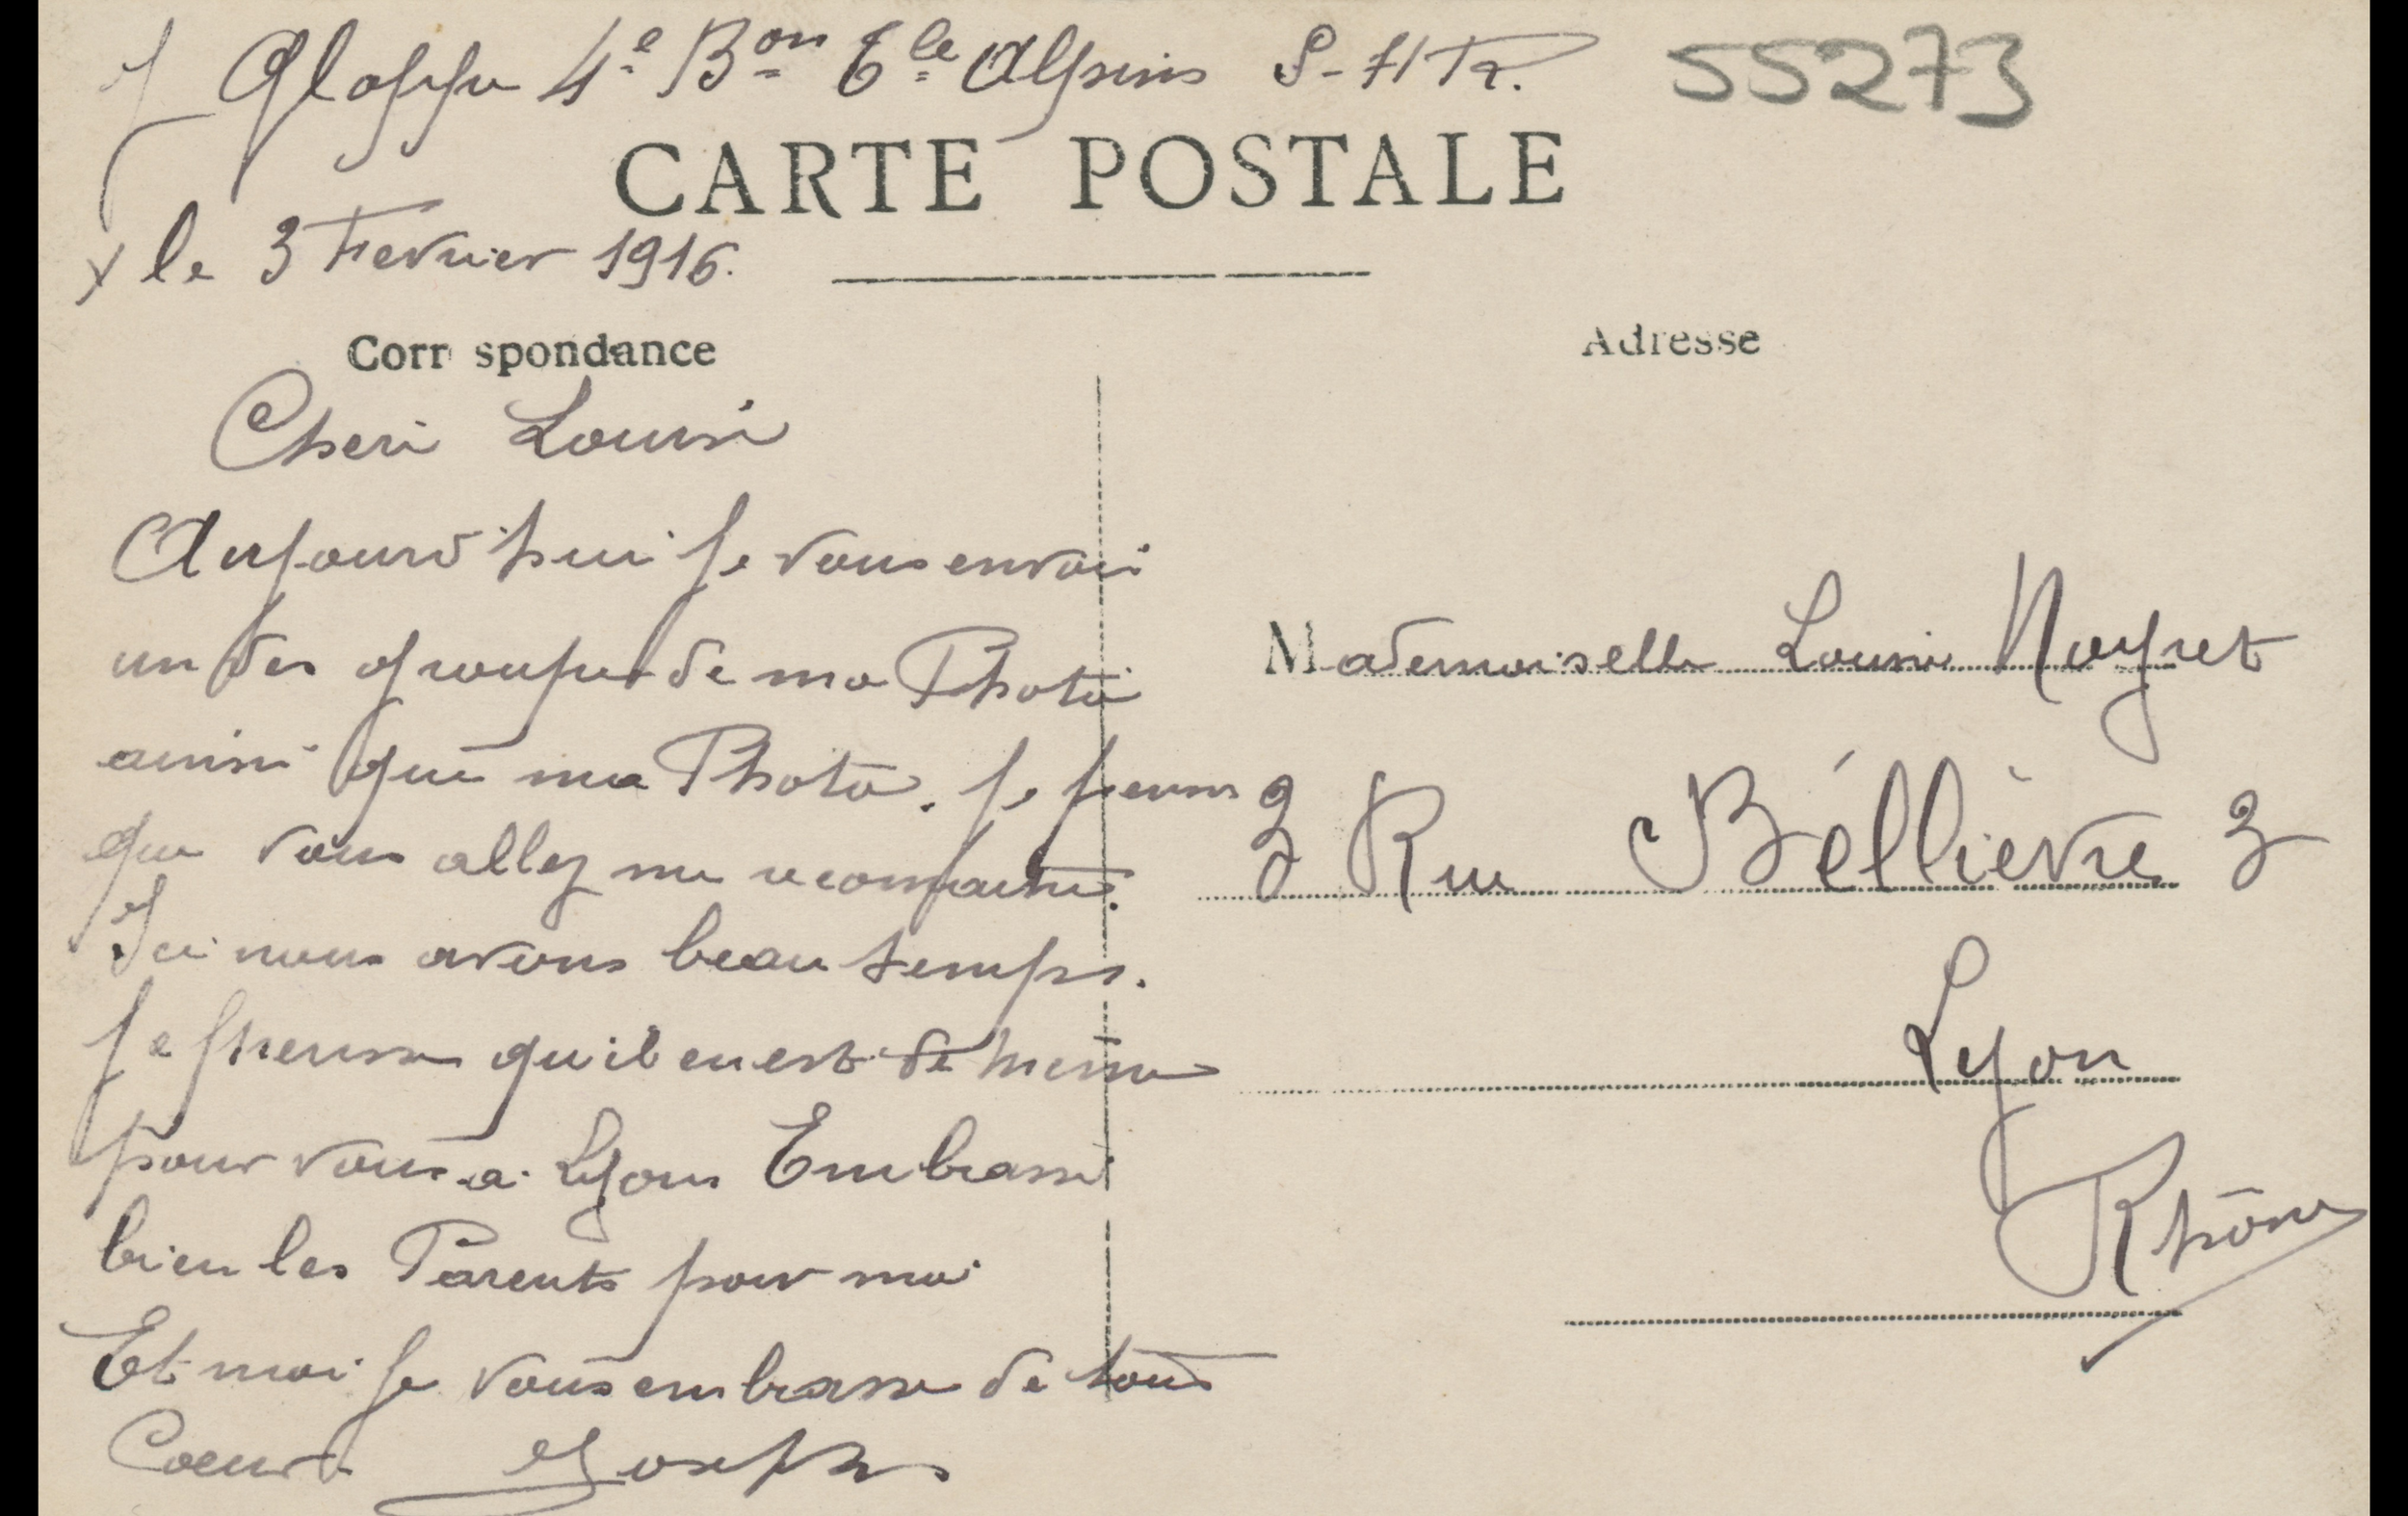 J Gloppe 4e Bon Tle Alpins S-H Tr.
55273
CARTE POSTALE
le 3 Fevrier 1916.
Correspondance
Adresse
Cheri Louise
Aujourd'hui Je vous envoi
un des groupes de ma Photo
ainsi que ma Photo. Je pense
que vous allez me reconnaitre.
Ici nous avons beau temps.
Je pense qu'il en est de meme
pour vous a Lyons Embrasse
bien les Parents pour moi
Et moi Je vous embrasse de tout
Coeur. Joseph
Mademoiselle Louise Noyret
3 Rue Béllièvre 3
Lyon
Rhône